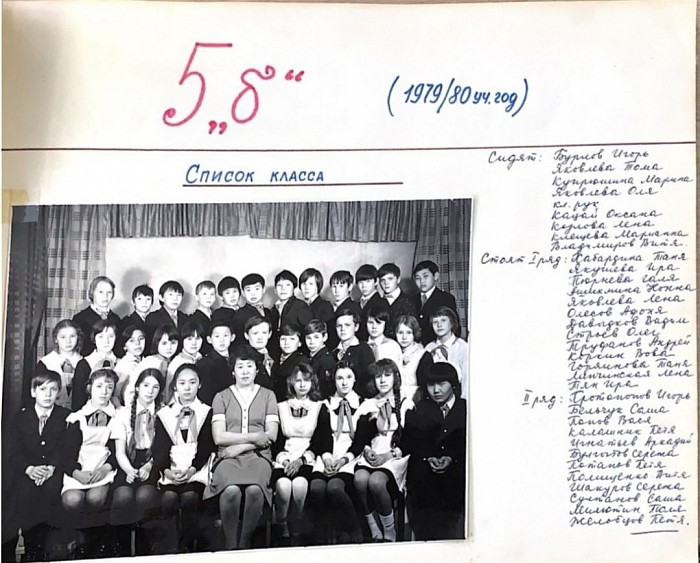 5 „б“
(1979/80 уч. год)
Список класса
Сидят: Бурлов Игорь
Яковлева Тома
Купрюшина Марина
Яковлева Оля
кл. рук
Кацай Оксана
Козлова Лена
Клещева Марианна
Владимиров Витя
Стоят I ряд: Хабардина Таня
Якушева Ира
Нонна
Яковлева Лена
Олесов
Давыдков Вадим
Строев Олег
Труфанов Андрей
Коркин Вова
Горяинова Таня
Лена
Тян Ира
II ряд: Протопопов Игорь
Бельчук Саша
Попов Вася
Калашник Петя
Игнатьев Аркадий
Сережа
Потапов Петя
Полищенко Витя
Шакуров Сережа
Султанов Саша
Милютин
Желобцов Петя.